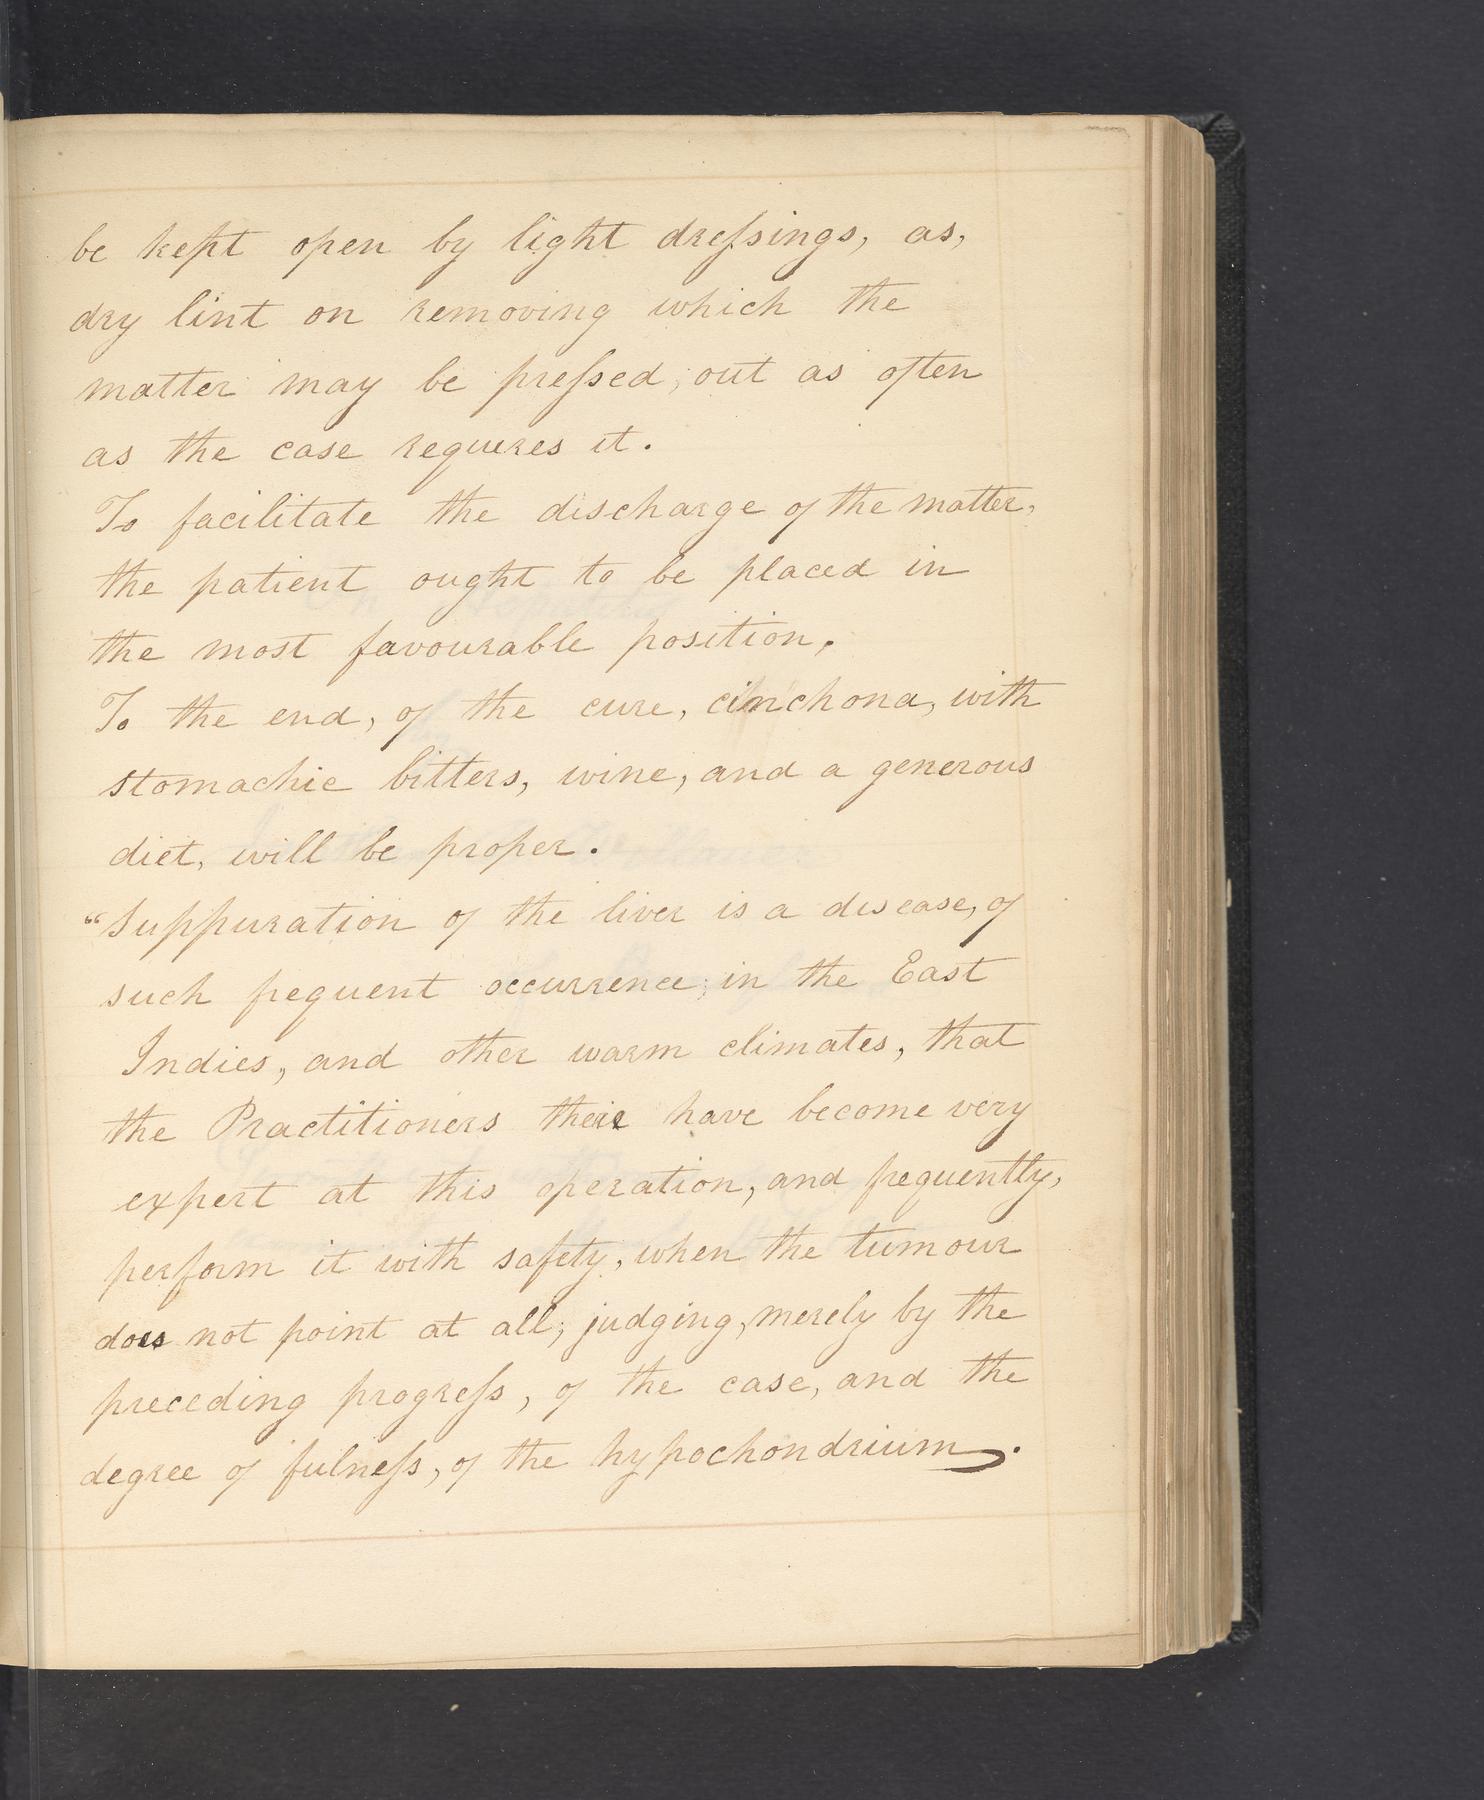 be kept open by light dreſsings, as,
dry lint on removing which the
matter may be preſsed, out as often
as the case requires it.
To facilitate the discharge of the matter,
the patient ought to be placed in
the most favourable position.
To the end, of the cure, cinchona, with
stomachic bitters, wine, and a generous
diet, will be proper.
“Suppuration of the liver is a disease, of
such frequent occurrence, in the East
Indies, and other warm climates, that
the Practitioners there have become very
expert at this operation, and frequently,
perform it with safety, when the tumour
does not point at all, judging, merely by the
preceding progreſs, of the case, and the
degree of fulneſs, of the hypochondrium.